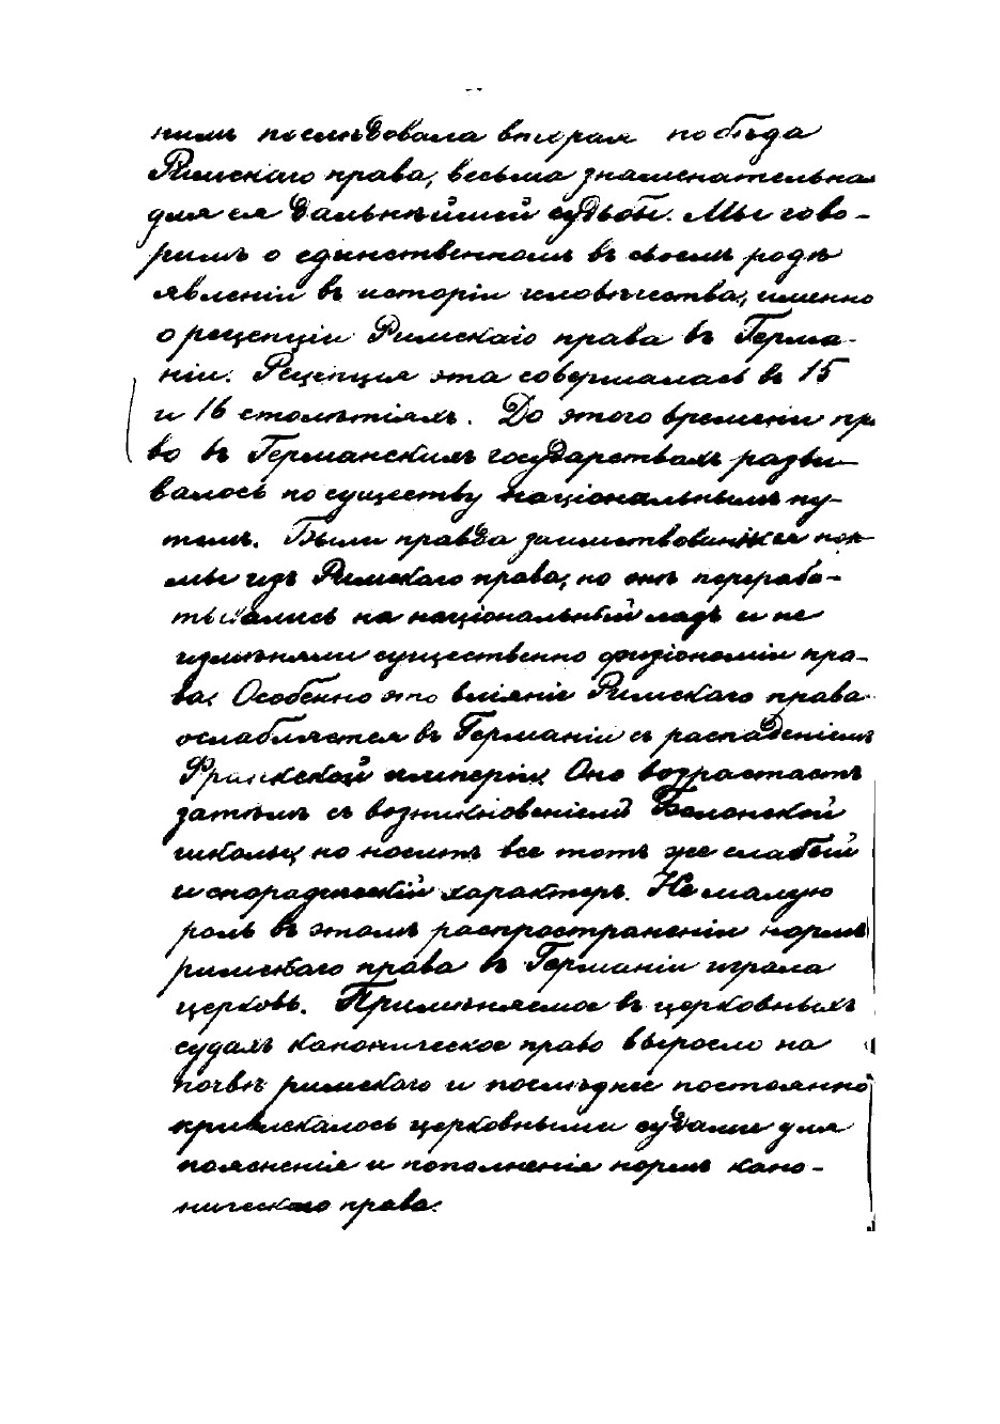 ними послѣдовала вторая побѣда
Римскаго права, весьма знаменательная
для ея дальнѣйшей судьбы. Мы гово-
римъ о единственномъ въ своемъ родѣ
явленіи въ исторіи человѣчества, именно
о рецепціи Римскаго права въ Герма-
ніи. Рецепція эта совершалась въ 15
и 16 столѣтіяхъ. До этого времени пра
во въ Германскихъ государствахъ разви-
валось по существу національнымъ пу-
темъ. Были правда заимствованія нор-
мы изъ Римскаго права, но онѣ перераба-
тывались на національный ладъ и не
измѣняли существенно физіономіи пра-
ва. Особенно это вліяніе Римскаго права
ослабляется въ Германіи съ распаденіемъ
Франкской имперіи. Оно возрастаетъ
затѣмъ съ возникновеніемъ Болонской
школы, но носитъ все тотъ же слабый
и спорадическій характеръ. Не малую
роль въ этомъ распространеніи нормъ
римскаго права въ Германіи играла
церковь. Примѣняемое въ церковныхъ
судахъ каноническое право выросло на
почвѣ римскаго и послѣднее постоянно
привлекалось церковными судами для
поясненія и пополненія нормъ кано-
ническаго права.